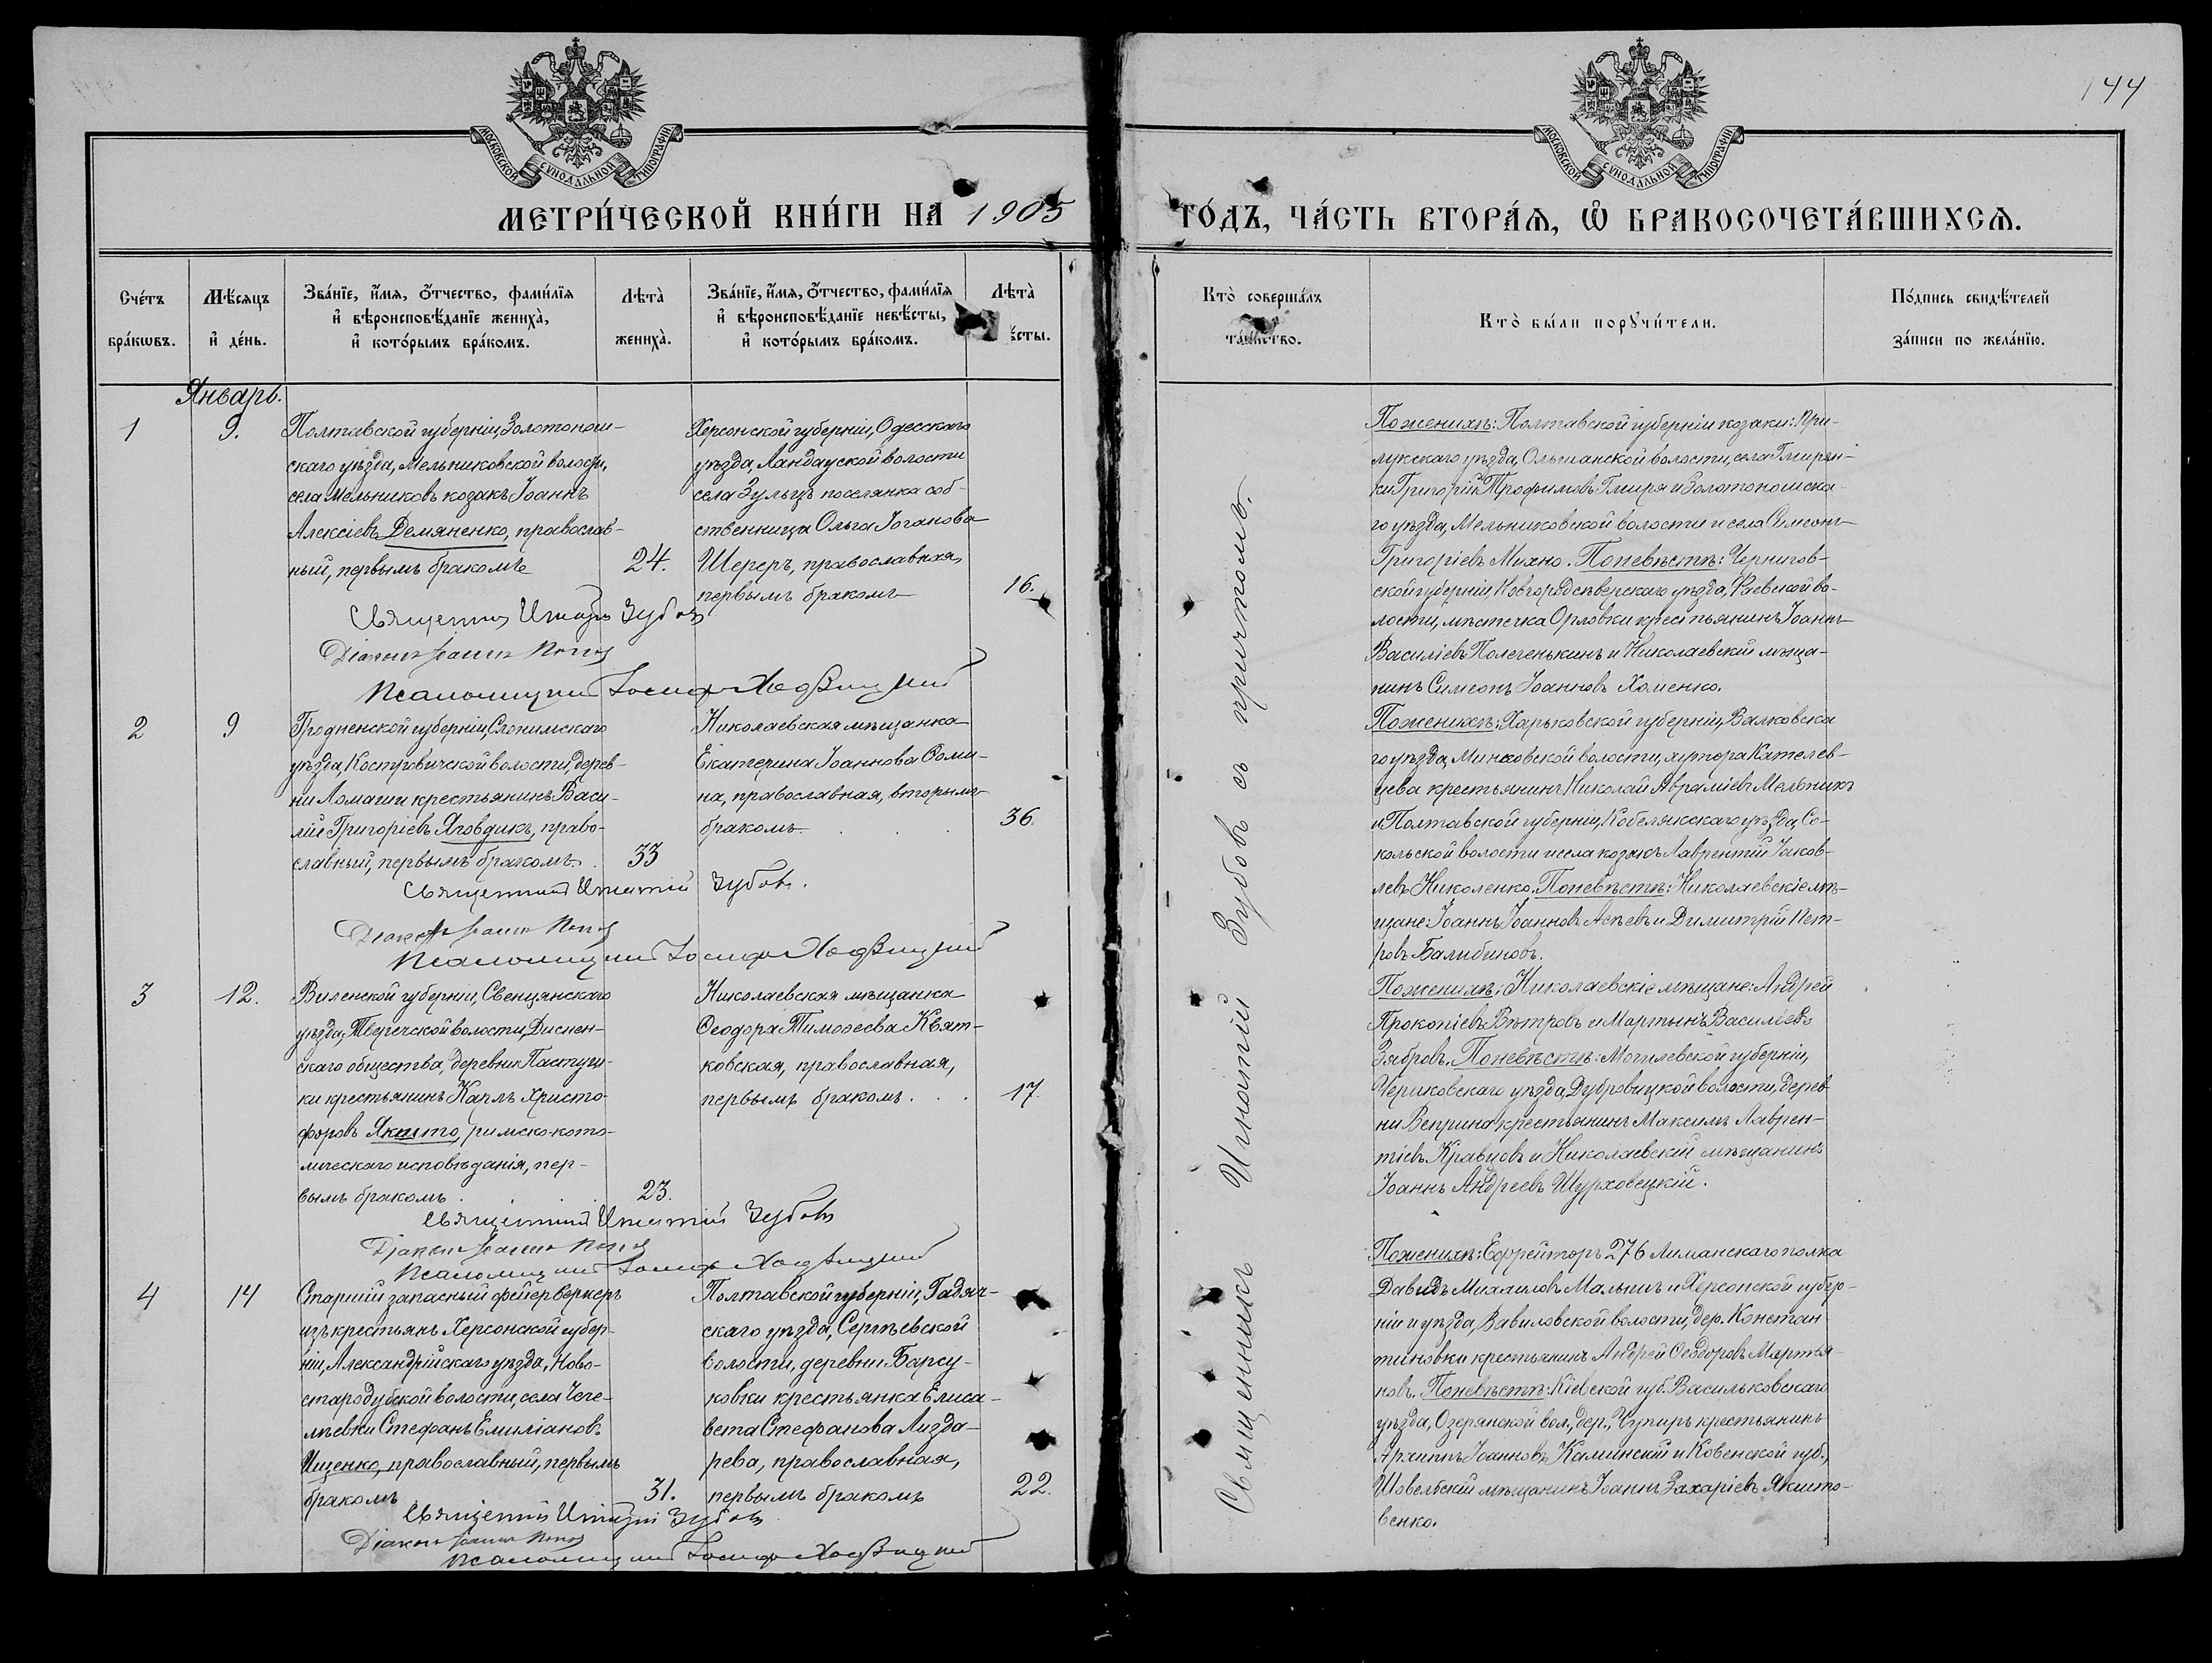 144
МОСКОВСКОЙ СѴНОДАЛЬНОЙ ТИПОГРАФІИ
МОСКОВСКОЙ СѴНОДАЛЬНОЙ ТИПОГРАФІИ
МЕТРИ́ЧЕСКОЙ КНИ́ГИ НА 1905 ГО́ДЪ, ЧА́СТЬ ВТОРА́Ѧ, Ѽ БРАКОСОЧЕТА́ВШИХСѦ.
Сче́тъ
бра́кѡвъ.
Мѣ́сѧцъ
и҆ де́нь.
Зва́нїе, и҆́мѧ, ѻ҆́тчество, фами́лїѧ
и҆ вѣроисповѣ́данїе жениха̀,
и҆ кото́рымъ бра́комъ.
Лѣта̀
жениха̀.
Зва́нїе, и҆́мѧ, ѻ҆́тчество, фами́лїѧ
и҆ вѣроисповѣ́данїе невѣ́сты,
и҆ кото́рымъ бра́комъ.
Лѣта̀
ѣ́сты.
Кто̀ соверша́лъ
та́инство.
Кто̀ бы́ли порꙋчи́тели.
По́дпись свидѣ́телей
за́писи по жела́нїю.
Январь.
1
9.
Полтавской губерніи, Золотонош-
скаго уѣзда, Мельниковской волости,
села Мельниковъ козакъ Іоаннъ
Алексіевъ Демяненко, православ-
ный, первымъ бракомъ
24.
Херсонской губерніи, Одесскаго
уѣзда, Ландауской волости
села Зульцъ поселянка соб-
ственница Ольга Іоганова
Шереръ, православная,
первымъ бракомъ
16.
Священник Игнатій Зубовъ
Діаконъ Іоаннъ
Псаломщикъ Іосифъ Ходзицкій
Поженихѣ: Полтавской губерніи козаки: При-
лукскаго уѣзда, Ольшанской волости, села Гмирян-
ки Григорій Трофимовъ Гмиря и Золотоношска-
го уѣзда, Мельниковской волости и села Симеонъ
Григоріевъ Михно. Поневѣстѣ: Чернигов-
ской губерніи Новгородсѣверскаго уѣзда, во-
лости, мѣстечка Орловки крестьянинъ Іоаннъ
Василіевъ Полегенькинъ и Николаевскій мѣща-
нинъ Симеонъ Іоанновъ Хоменко.
2
9
Гродненской губерніи, Слонимскаго
уѣзда, Костровичской волости, дерев-
ни Ломаши крестьянинъ Васи-
лій Григоріевъ Яговдикъ, право-
славный, первымъ бракомъ.
33
Николаевская мѣщанка
Екатерина Іоаннова Ѳоми-
на, православная, вторымъ
бракомъ
36.
Священникъ Игнатій Зубовъ.
Діаконъ Іоаннъ
Псаломщикъ Іосифъ Ходзицкій
Поженихѣ: Харьковской губерніи, Валковска
го уѣзда, Минковской волости, хутора Кателев-
цева крестьянинъ Николай Авраміевъ Мельникъ
и Полтавской губерніи, Кобелякскаго уѣзда, Со-
кольской волости и села козакъ Лаврентій Іаков-
левъ Николенко. Поневѣстѣ: Николаевскіе мѣ-
щане: Іоаннъ Іоанновъ Асѣевъ и Димитрій Пет-
ровъ Балибиновъ.
3
12.
Виленской губерніи, Свенцянскаго
уѣзда, Тверечской волости, Диснен-
скаго общества, деревни
ки крестьянинъ Карлъ Христо-
форовъ Якшто, римско-като-
лическаго исповѣданія, пер-
вымъ бракомъ
23.
Николаевская мѣщанка
Ѳеодора Тимоѳеева Квят-
ковская, православная,
первымъ бракомъ.
17.
Священникъ Игнатій Зубовъ
Діаконъ Іоаннъ
Псаломщикъ Іосифъ Ходзицкій
Поженихѣ: Николаевскіе мѣщане: Андрей
Прокопіевъ Вѣтровъ и Мартынъ Василіевъ
Зябровъ. Поневѣстѣ: Могилевской губерніи,
Чериковскаго уѣзда, Дубровицкой волости, дерев
ни Веприна крестьянинъ Максимъ Лаврен-
тіевъ Кравцовъ и Николаевскій мѣщанинъ
Іоаннъ Андреевъ Шурховецкій.
4
14
Старшій запасный фейерверкеръ
изъ крестьянъ Херсонской губер-
ніи, Александрійскаго уѣзда, Ново-
стародубской волости, села Чече-
лѣевки Стефанъ Емиліановъ
Ищенко, православный, первымъ
бракомъ
31.
Полтавской губерніи, Гадяч-
скаго уѣзда, Сергѣевской
волости, деревни Барсу-
ковки крестьянка Елиса-
вета Стефанова Лизда-
рева, православная,
первымъ бракомъ
22.
Священникъ Игнатій Зубовъ
Діаконъ Іоаннъ
Псаломщикъ Іосифъ Ходзицкій
Поженихѣ: Ефрейторъ 276 Лиманскаго полка
Давидъ Михаиловъ Малышъ и Херсонской губер-
ніи и уѣзда, Вавиловской волости, дер. Констан
тиновки крестьянинъ Андрей Ѳеодоровъ Мартья-
новъ. Поневѣстѣ: Кіевской губ. Васильковскаго
уѣзда, Озерянской вол., дер., Чупиръ крестьянинъ
Архиппъ Іоанновъ Каминскій и Ковенской губ.,
Шовельскій мѣщанинъ Іоаннъ Захаріевъ Якшто-
венко.
Священникъ Игнатій Зубовъ съ причтомъ.